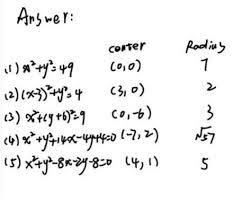 Answer:
center Radius
(1) x²+y²=49 (0,0) 7
(2) (x-3)²+y²=4 (3,0) 2
(3) x²+(y+6)²=9 (0,-6) 3
(4) x²+y²+14x-4y+4=0 (-7,2) √57
(5) x²+y²-8x-2y-8=0 (4,1) 5